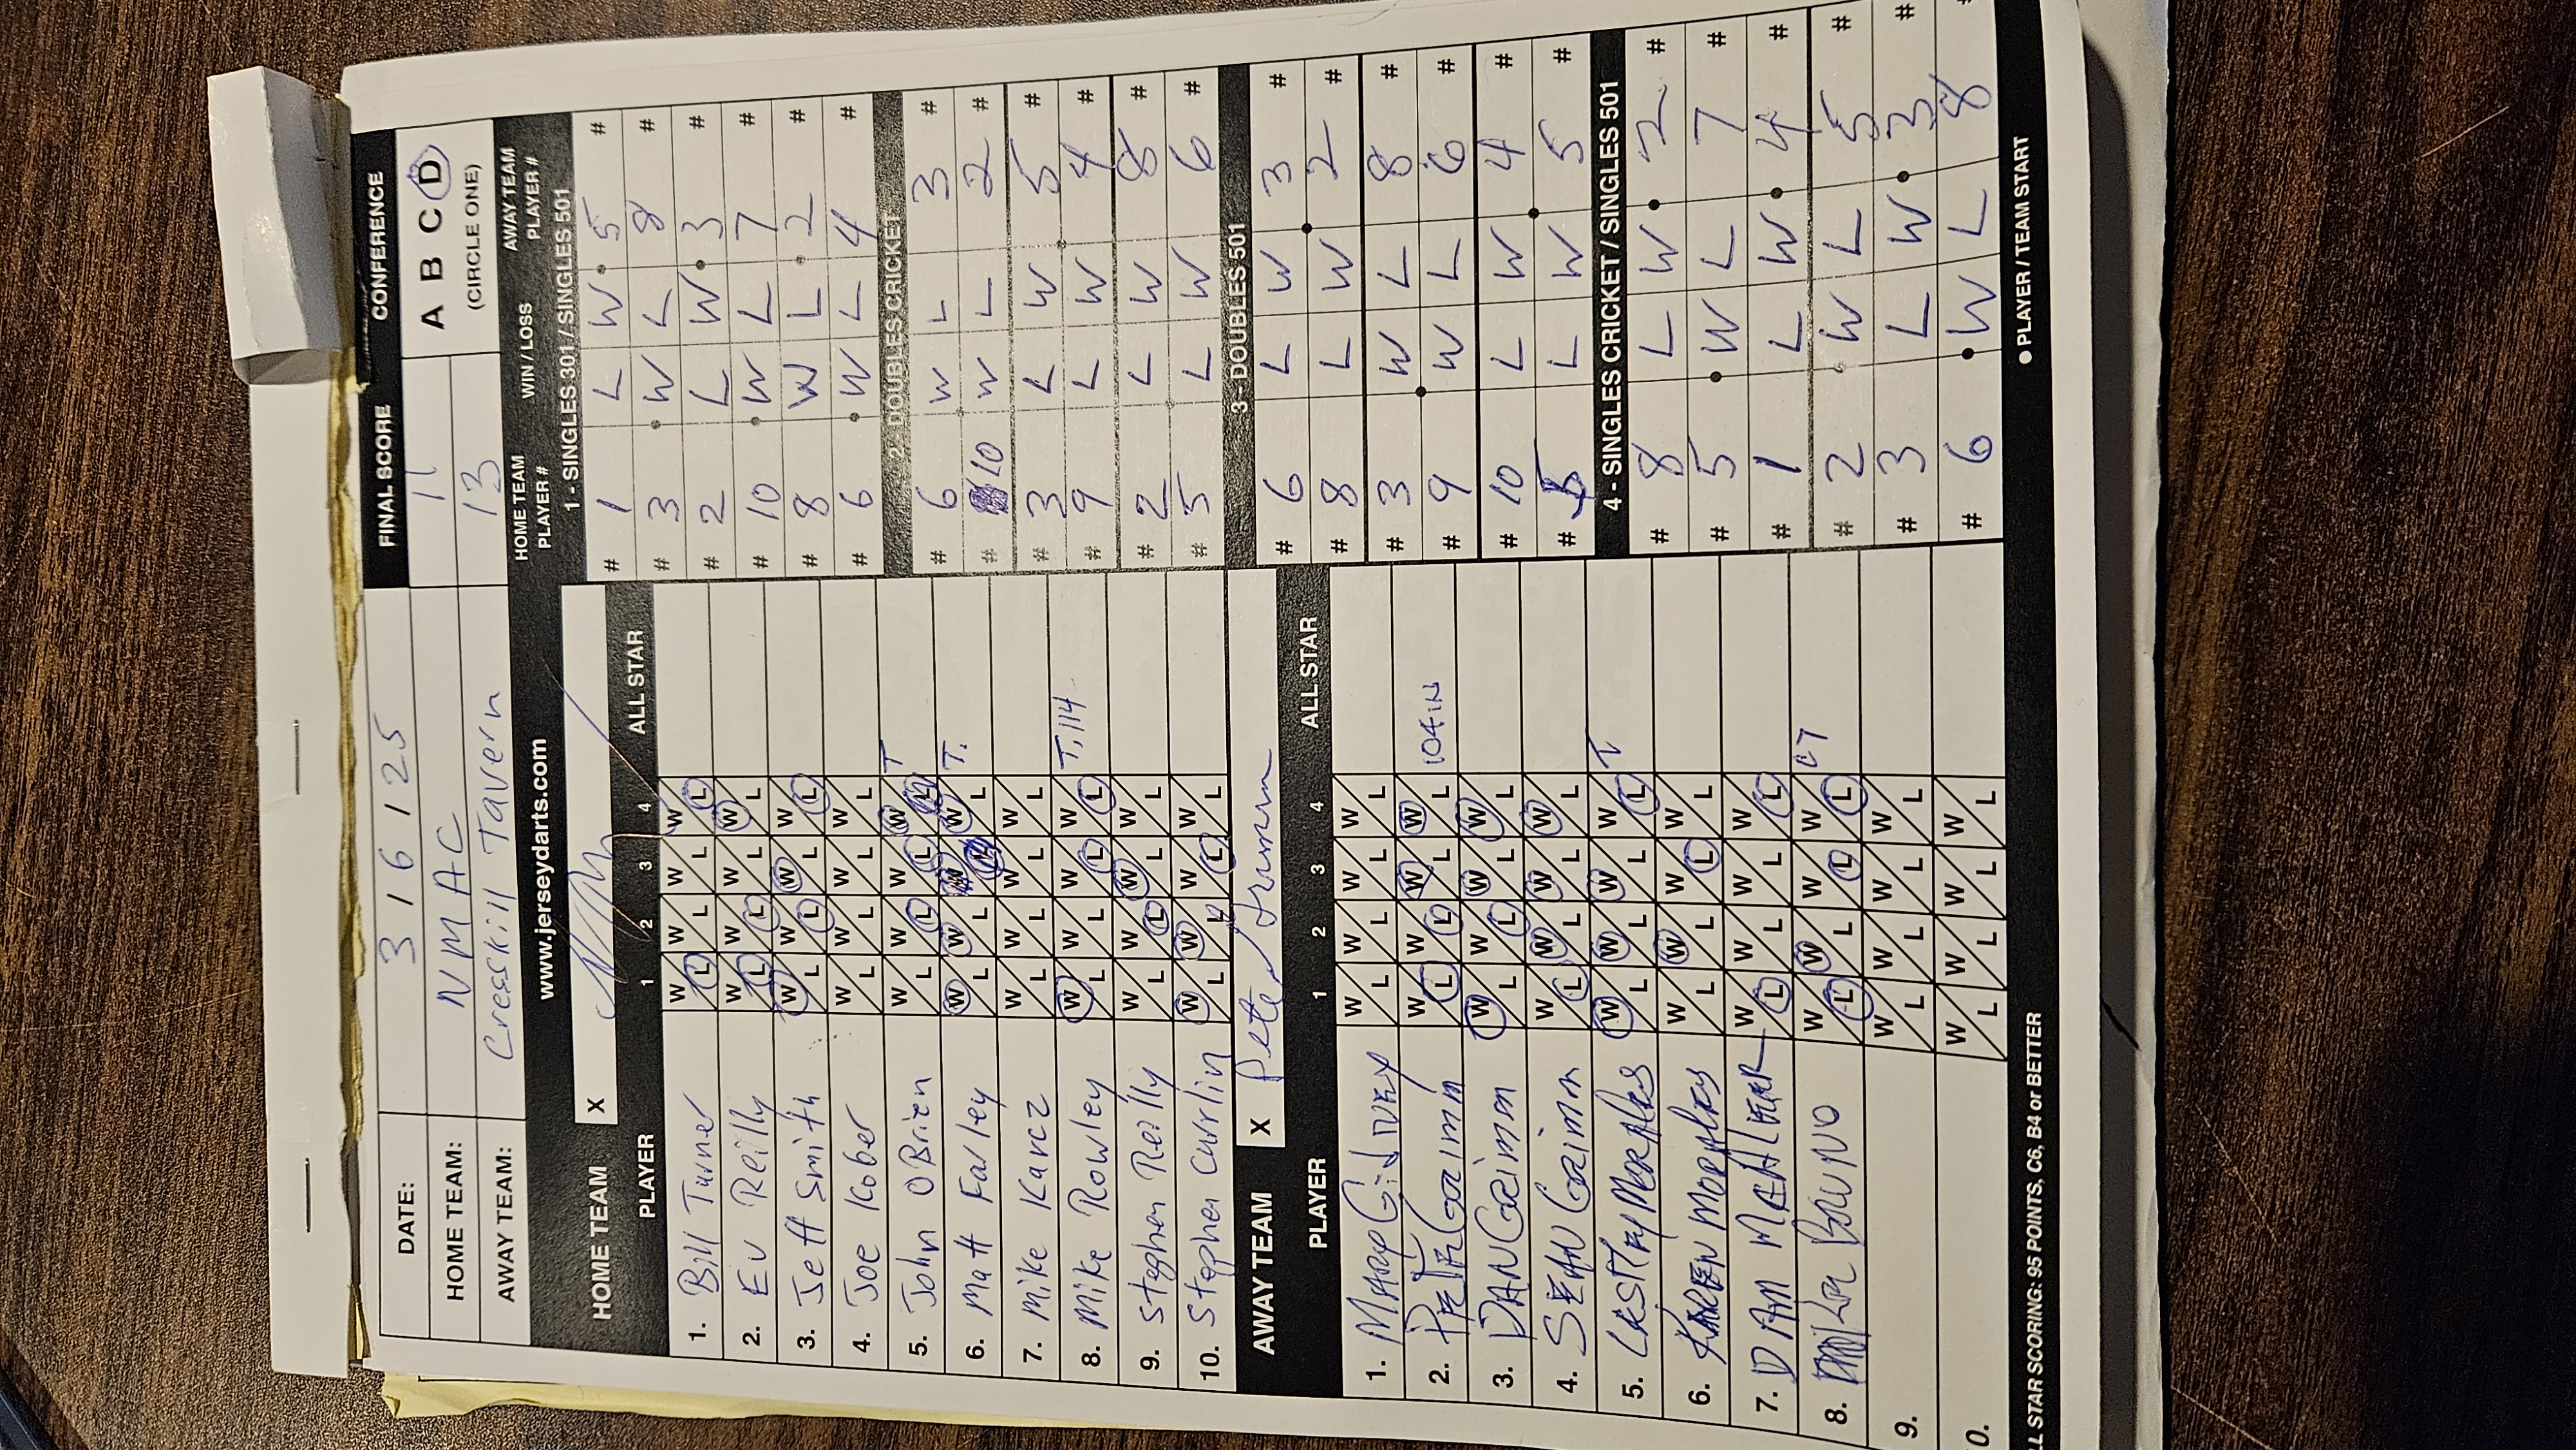 DATE: 3 / 6 / 25
FINAL SCORE CONFERENCE
HOME TEAM: NMAC 11 A B C D
AWAY TEAM: Cresskill Tavern 13 (CIRCLE ONE)
www.jerseydarts.com
HOME TEAM X
PLAYER 1 2 3 4 ALL STAR
1. Bill Turner W L W L W L W L
2. Ev Reilly W L W L W L W L
3. Jeff Smith W L W L W L W L
4. Joe Kober W L W L W L W L
5. John OBrien W L W L W L W L T
6. Matt Farley W L W L W L W L T.
7. Mike Karcz W L W L W L W L
8. Mike Rowley W L W L W L W L T, 114
9. Stephen Reilly W L W L W L W L
10. Stephen Currlin W L W L W L W L
AWAY TEAM X
PLAYER 1 2 3 4 ALL STAR
1. W L W L W L W L
2. PETE Grimm W L W L W L W L 104 IN
3. DAN Grimm W L W L W L W L
4. SEAN Grimm W L W L W L W L
5. Morales W L W L W L W L T
6. KAREN MORALES W L W L W L W L
7. DAN W L W L W L W L
8. BRUNO W L W L W L W L
9. W L W L W L W L
0. W L W L W L W L
LL STAR SCORING: 95 POINTS, C6, B4 or BETTER
HOME TEAM PLAYER # WIN / LOSS AWAY TEAM PLAYER #
1 - SINGLES 301 / SINGLES 501
# 1 L W 5 #
# 3 W L 8 #
# 2 L W 3 #
# 10 W L 7 #
# 8 W L 2 #
# 6 W L 4 #
2 - DOUBLES CRICKET
# 6 W L 3 #
# 10 W L 2 #
# 3 L W 5 #
# 9 L W 4 #
# 2 L W 8 #
# 5 L W 6 #
3 - DOUBLES 501
# 6 L W 3 #
# 8 L W 2 #
# 3 W L 8 #
# 9 W L 6 #
# 10 L W 4 #
# 5 L W 5 #
4 - SINGLES CRICKET / SINGLES 501
# 8 L W 2 #
# 5 W L 7 #
# 1 L W 4 #
# 2 W L 5 #
# 3 L W 3 #
# 6 W L 8 #
● PLAYER / TEAM START